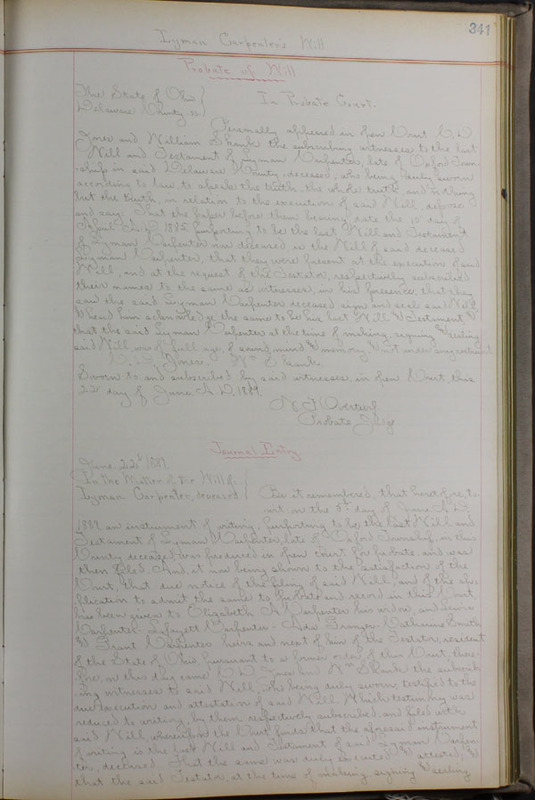 341
Lyman Carpenter's Will
Probate of Will
The State of Ohio
Delaware County, ss
In Probate Court.
Personally appeared in open Court C. D.
and William Shank the subscribing witnesses to the last
Will and Testament of Lyman Carpenter, late of Oxford Town-
-ship in said Delaware County, deceased, who being duly sworn
according to law, to speak the truth the whole truth and nothing
but the truth, in relation to the execution of said Will, depose
and say: That the paper before them bearing date the 10 day of
April A.D. 1885 purporting to be the last Will and Testament
of Lyman Carpenter now deceased is the Will of said deceased
Lyman Carpenter, that they were present at the execution of said
Will, and at the request of the Testator, respectively subscribed
their names to the same as witnesses, in his presence, that they
saw the said Lyman Carpenter deceased sign and seal said Will
& heard him acknowledge the same to be his last Will & Testament &
that the said Lyman Carpenter at the time of making, signing & sealing
said Will, was of full age of sound mind & memory & not under any restraint
Wm Shank
Sworn to and subscribed by said witnesses, in open Court, this
22d day of June A.D. 1889.
Overturf
Probate Judge
Journal Entry
June 22d 1889.
In the Matter of the Will of
Lyman Carpenter, deceased
Be it remembered, that heretofore, to
wit on the day of June A.D.
1889 an instrument of writing, purporting to be the last Will and
Testament of Lyman Carpenter, late of Oxford Township, in this
County deceased was produced in open Court for probate, and was
then filed. And, it now being shown to the satisfaction of the
Court, that due notice of the filing of said Will, and of the ap-
plication to admit the same to probate and record in this Court
has been given to Elizabeth A. Carpenter his widow, and
Carpenter, Lafayett Carpenter - Catherine Smith
& Grant Carpenter heirs and next of kin of the Testator, resident
of the State of Ohio pursuant to a former order of this Court there-
fore, on this day came C. D. and Wm Shank the subscrib-
ing witnesses to said Will, who being duly sworn, testified to the
due execution and attestation of said Will; Which testimony was
reduced to writing, by them respectively subscribed, and filed with
said Will, whereupon the Court finds that the aforesaid instrument
of writing is the last Will and Testament of said Lyman Carpen-
ter, deceased. That the same was duly executed & attested, &
that the said Testator, at the time of making, signing & sealing